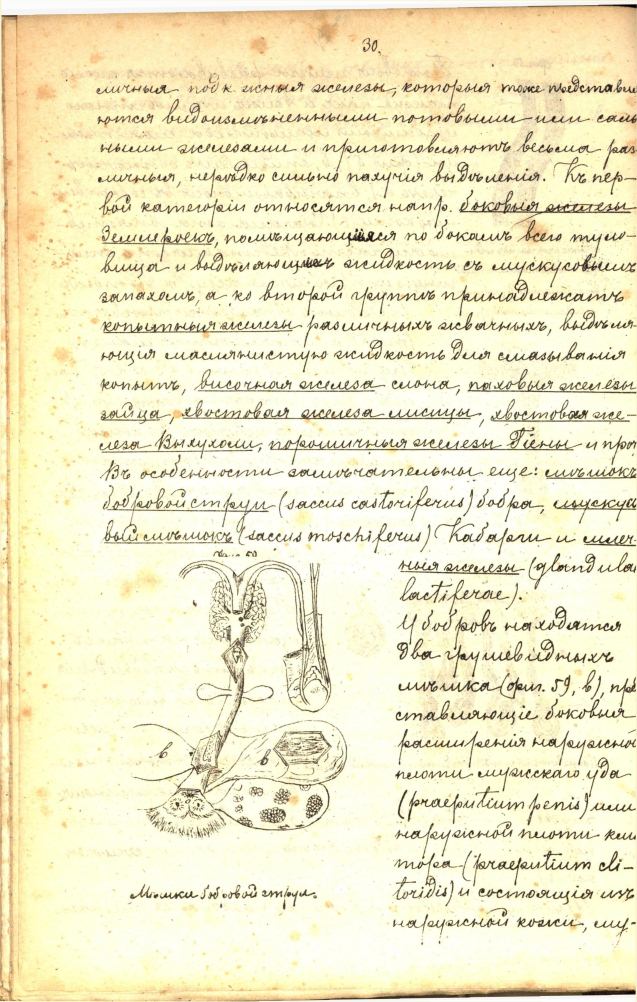 30.
личныя подкожныя железы, которыя тоже представля
ются видоизмѣненными потовыми или саль
ными железами и приготовляютъ весьма раз
личныя, нерѣдко сильно пахучія выдѣленія. Къ пер-
вой категоріи относятся напр. боковыя железы
Землероекъ, помѣщающіяся по бокамъ всего туло-
вища и выдѣляющихъ жидкость съ мускусовымъ
запахомъ, а ко второй группѣ принадлежатъ
копытныя железы различныхъ жвачныхъ, выдѣля-
ющія маслянистую жидкость для смазыванія
копытъ, височная железа слона, паховыя железы
зайца, хвостовая железа лисицы, хвостовая же-
леза Выхухоли, порошичныя железы Гіены и проч
Въ особенности замѣчательны еще: мѣшокъ
бобровой струи (saccus castoriferus) бобра, мускусо
вый мѣшокъ (saccus moschiferus) Кабарги и млеч-
ныя железы (glandulae
lactiferae).
У бобровъ находятся
два грушевидныхъ
мѣшка (фиг. 59, b), пред
ставляющіе боковыя
расширенія наружной
плоти мужскаго уда
(praeputium penis) или
наружной плоти кли
тора (praeputium cli-
toridis) и состоящія изъ
наружной кожи, му-
59
b
b
Мѣшки бобровой струи.